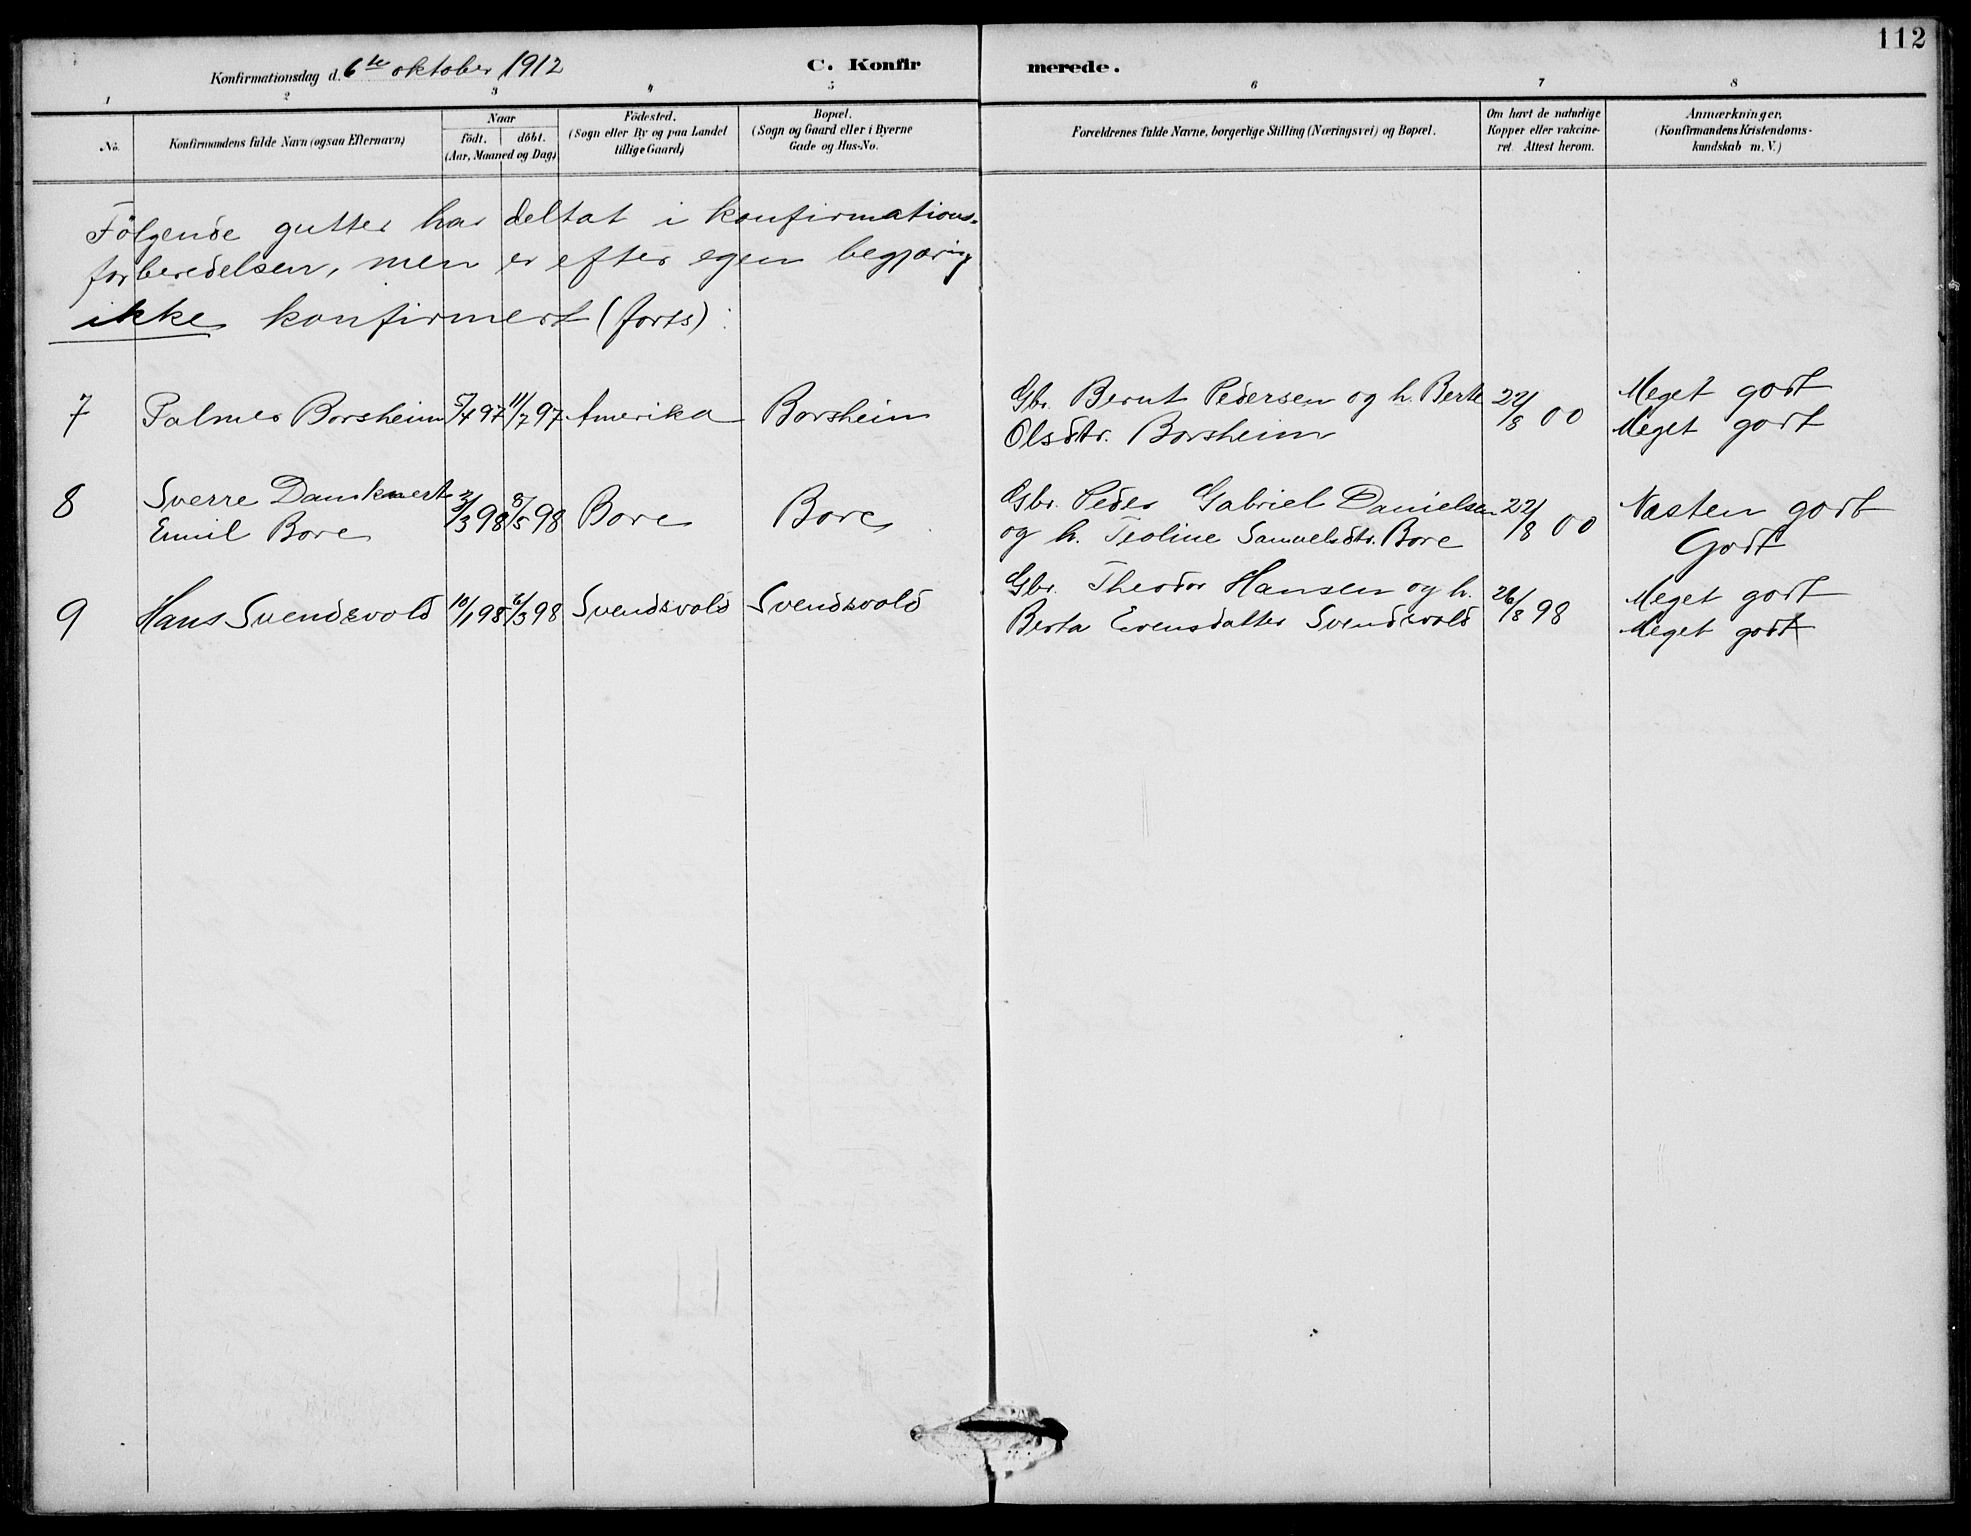 112
Konfirmationsdag d. 6te oktober 1912
C. Konfirmerede.
1 2 3 4 5 6 7 8
No.
Konfirmandens fulde Navn (ogsaa Efternavn)
Naar
födt. döbt.
(Aar, Maaned og Dag)
Födested.
(Sogn eller By og paa Landet
tillige Gaard)
Bopæl.
(Sogn og Gaard eller i Byerne
Gade og Hus-No.
Forældrenes fulde Navne, borgerlige Stilling (Næringsvei) og Bopæl.
Om havt de naturlige
Kopper eller vakcine-
ret. Attest herom.
Anmærkninger,
(Konfirmandens Kristendoms-
kundskab m. V.)
Følgende gutter har deltat i konfirmations-
forberedelsen, men er efter egen begjæring
ikke konfirmert (forts) :
7 Palmer Borsheim 5/4 97 11/7 97 Amerika Borsheim Gbr. Bernt Pedersen og h. Berte 22/8 00 Meget godt
Olsdtr. Borsheim Meget godt
8 Sverre Dankvert 3/3 98 8/5 98 Bore Bore Gbr. Peder Gabriel Danielsen 22/8 00 Næsten godt
Emil Bore og h. Teoline Samuelsdtr. Bore Godt
9 Hans Svendsvold 10/1 98 6/3 98 Svendsvold Svendsvold Gbr. Theodor Hansen og h. 26/8 98 Meget godt
Berta Evensdatter Svendsvold Meget godt